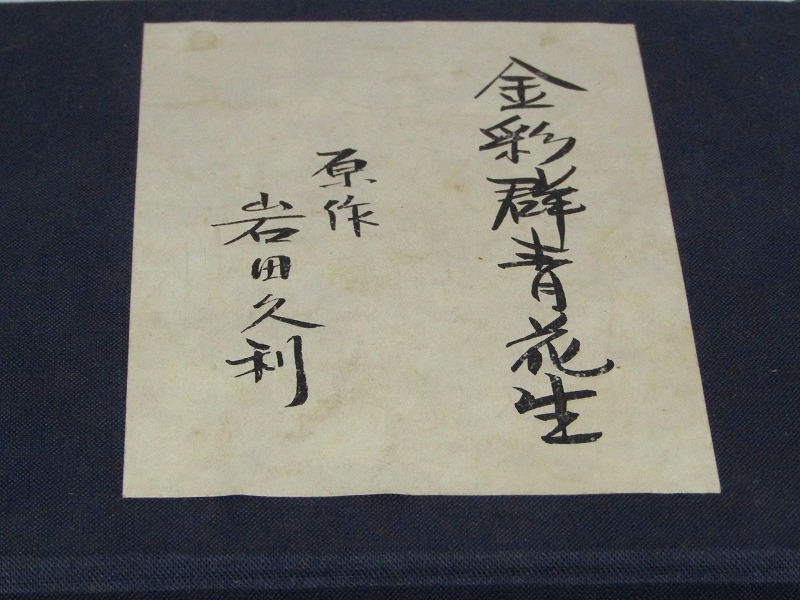 金彩群青花生
原作
岩田久利